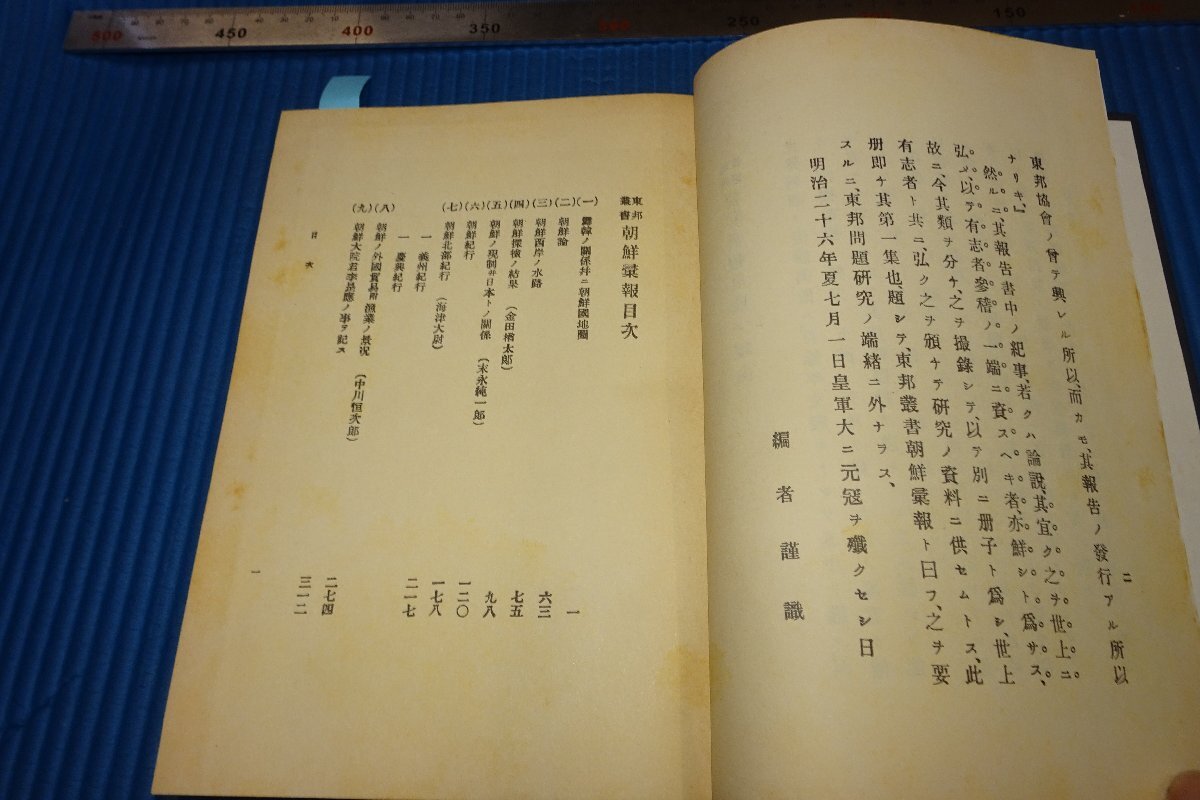 二
東邦協會ノ曾テ興レル所以、而カモ、其報告ノ發行アル所以
ナリキ、
然ルニ、其報告書中ノ紀事、若クハ論說、其宜ク之ヲ世上ニ
弘メ、以テ有志者參稽ノ一端ニ資スヘキ者、亦鮮シト爲サス、
故ニ、今其類ヲ分ケ、之ヲ撮錄シテ、以テ別ニ册子ト爲シ、世上
有志者ト共ニ、弘ク之ヲ頒ケテ硏究ノ資料ニ供セムトス、此
册卽チ其第一集也、題シテ、東邦叢書朝鮮彙報ト曰フ、之ヲ要
スルニ、東邦問題硏究ノ端緖ニ外ナラス、
明治二十六年夏七月一日皇軍大ニ元寇ヲ殲クセシ日
編者謹識
東邦叢書 朝鮮彙報目次
(一) 露韓ノ關係幷ニ朝鮮國地圖 一
(二) 朝鮮論 六三
(三) 朝鮮西岸ノ水路 七五
(四) 朝鮮探檢ノ結果 (金田楢太郎) 九八
(五) 朝鮮ノ現制幷日本トノ關係 (末永純一郎) 一二〇
(六) 朝鮮紀行 一七八
(七) 朝鮮北部紀行 (海津大尉) 二一七
一 義州紀行
一 慶興紀行
(八) 朝鮮ノ外國貿易附漁業ノ景況 (中川恒次郎) 二七四
(九) 朝鮮大院君李昰應ノ事ヲ記ス 三一二
目次
一
500 450 400 350 300 250 200 150